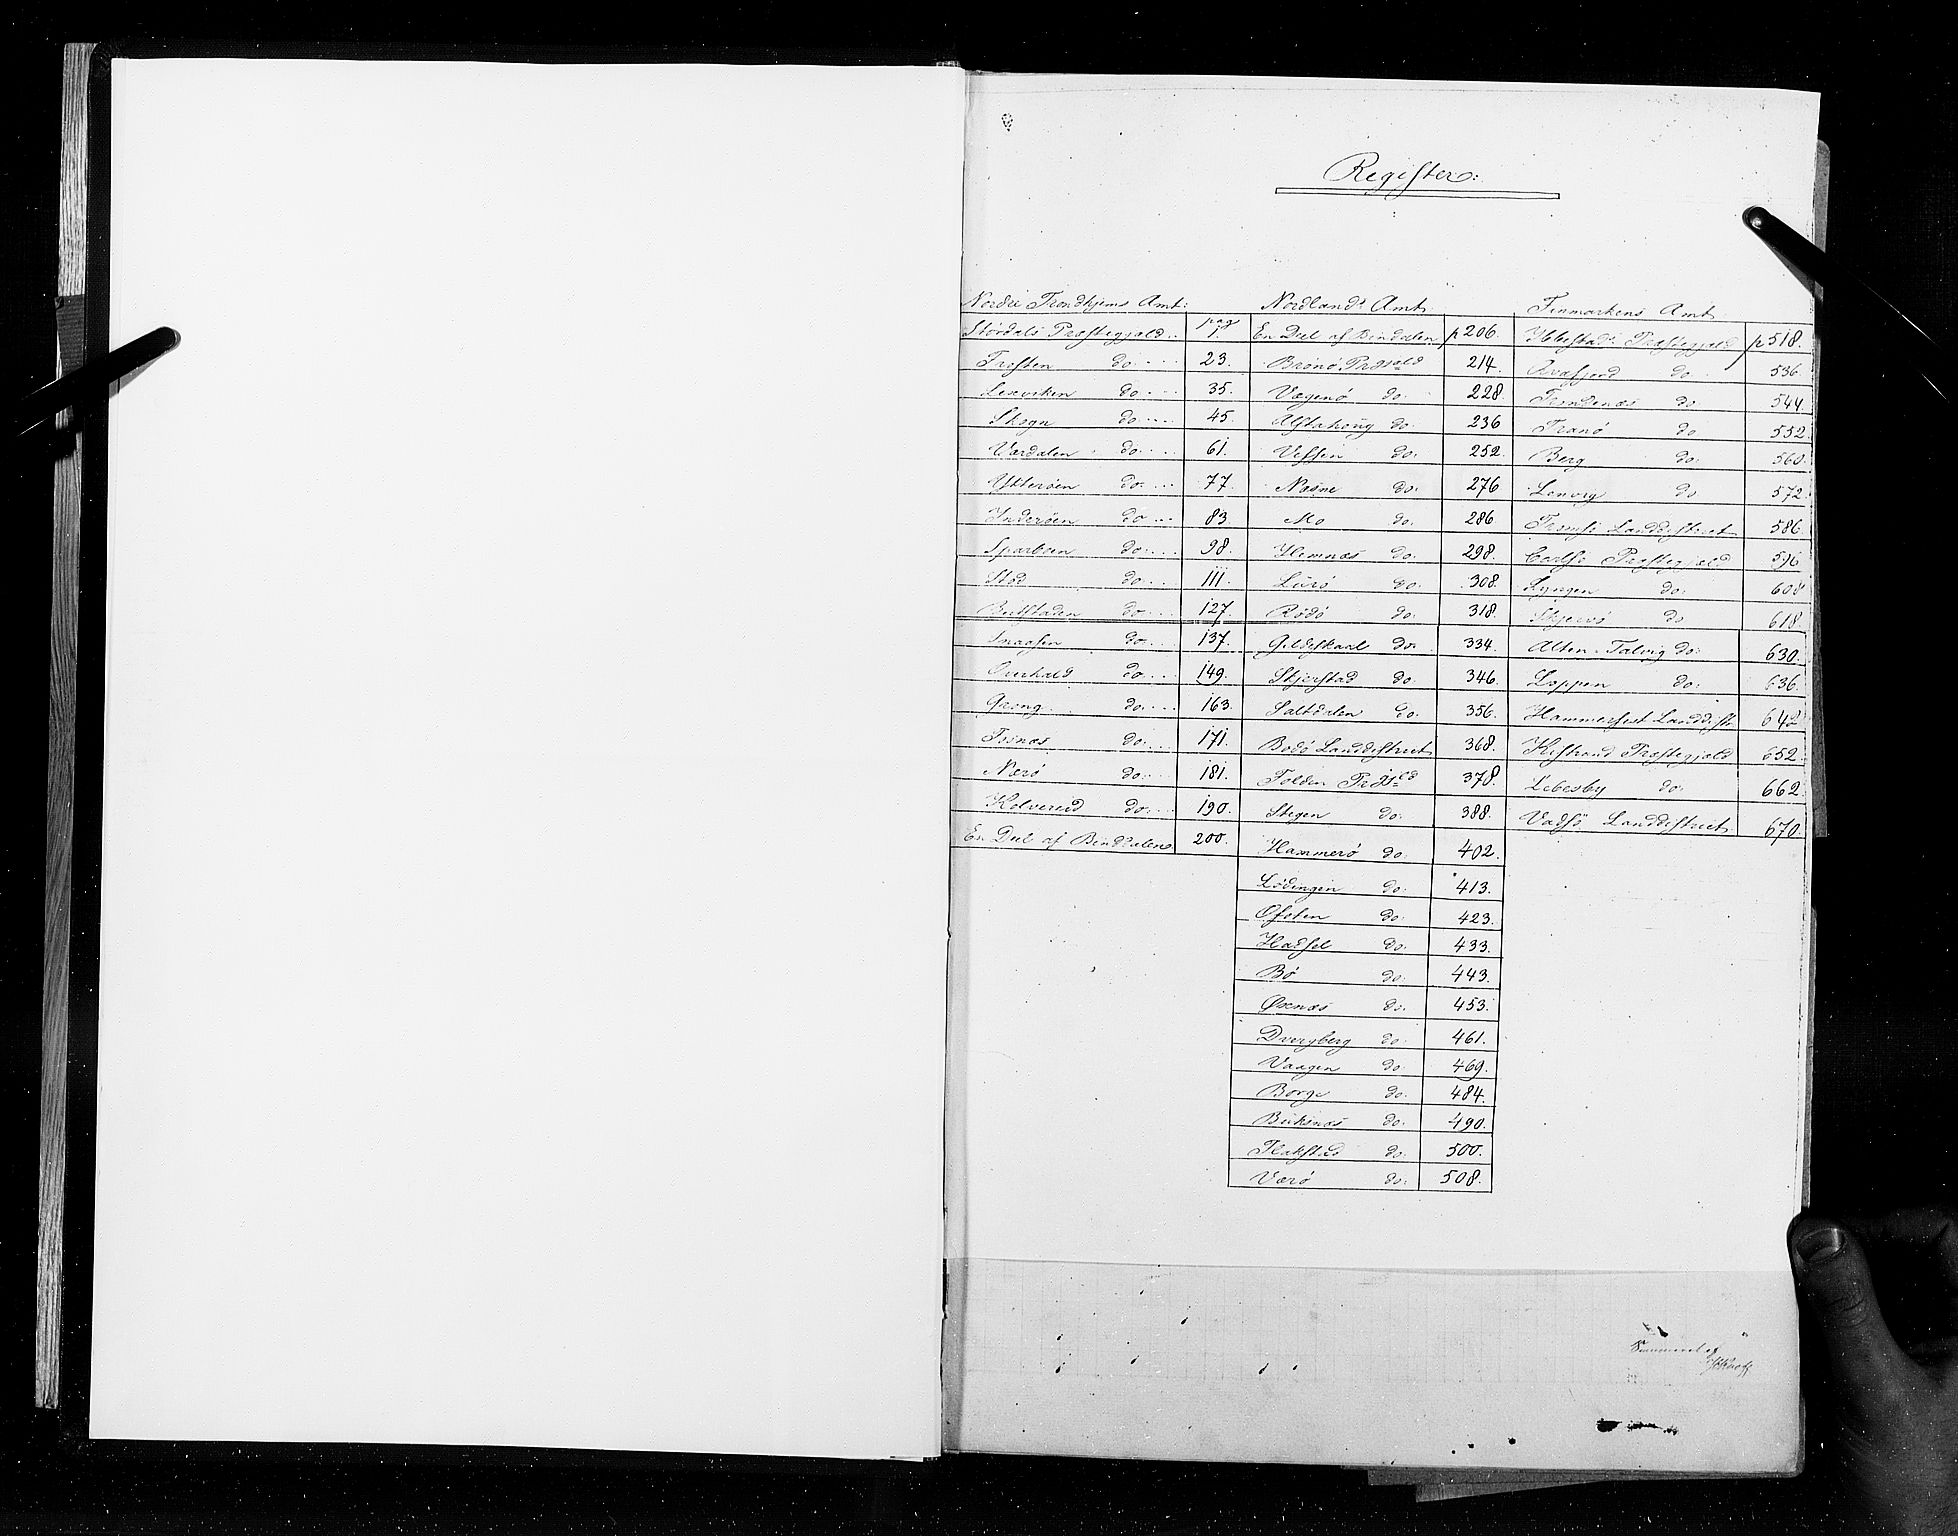 Register:
Nordre Trondhjems Amt:
Størdals Præstegjæld .. pag 1.
Frosten do 23.
Lexviken do 35.
Skogn do 45.
Værdalen do 61.
Ytterøen do 77.
Inderøen do 83.
Sparboen do 98.
Stod do 111.
Beitstaden do 127.
Snaasen do 137.
Overhald do 149.
Grong do 163.
Fosnæs do 171.
Nærø do 181.
Kolvereid do 190.
En Deel af Binddalen 200.
Nordlands Amt:
En Deel af Bindalen p 206.
Brønø Præstgjæld 214.
Vægenø do: 228.
Alstahoug do: 236
Vefsen do: 252.
Næsne do: 276
Mo do: 286
Hemnæs do: 298.
Lurø do: 308.
Rødø do: 318.
Gildeskaal do: 334.
Skjerstad do: 346.
Saltdalen do: 356.
Bodø Landdistrict 368.
Folden 378.
Stegen do: 388.
Hammerø do: 402.
Lødingen do: 413.
Ofoten do: 423.
Hadsel do: 433.
Bø do: 443.
Øxnæs do: 453.
Dverberg do: 461.
Vaagen do: 469.
Borge do: 484.
Buksnæs do: 490.
Flakstad do: 500.
Værø do: 508.
Finmarkens Amt:
Ibbestads Præstegjæld p 518.
Qvæfjord do 536
Trondenæs do 544.
Tranø do 552.
Berg do: 560.
Lenvig do 572.
Tromsø Landdistrict 586.
Carlsø Præstegjæld 596
Lyngen do: 608
Skjervø do 618.
Alten-Talvig do: 630.
Loppen do: 636.
Hammerfest Landdistr 642
Kistrand Præstegjæld 652.
Lebesby do: 662.
Vadsø Landdistrict 670.